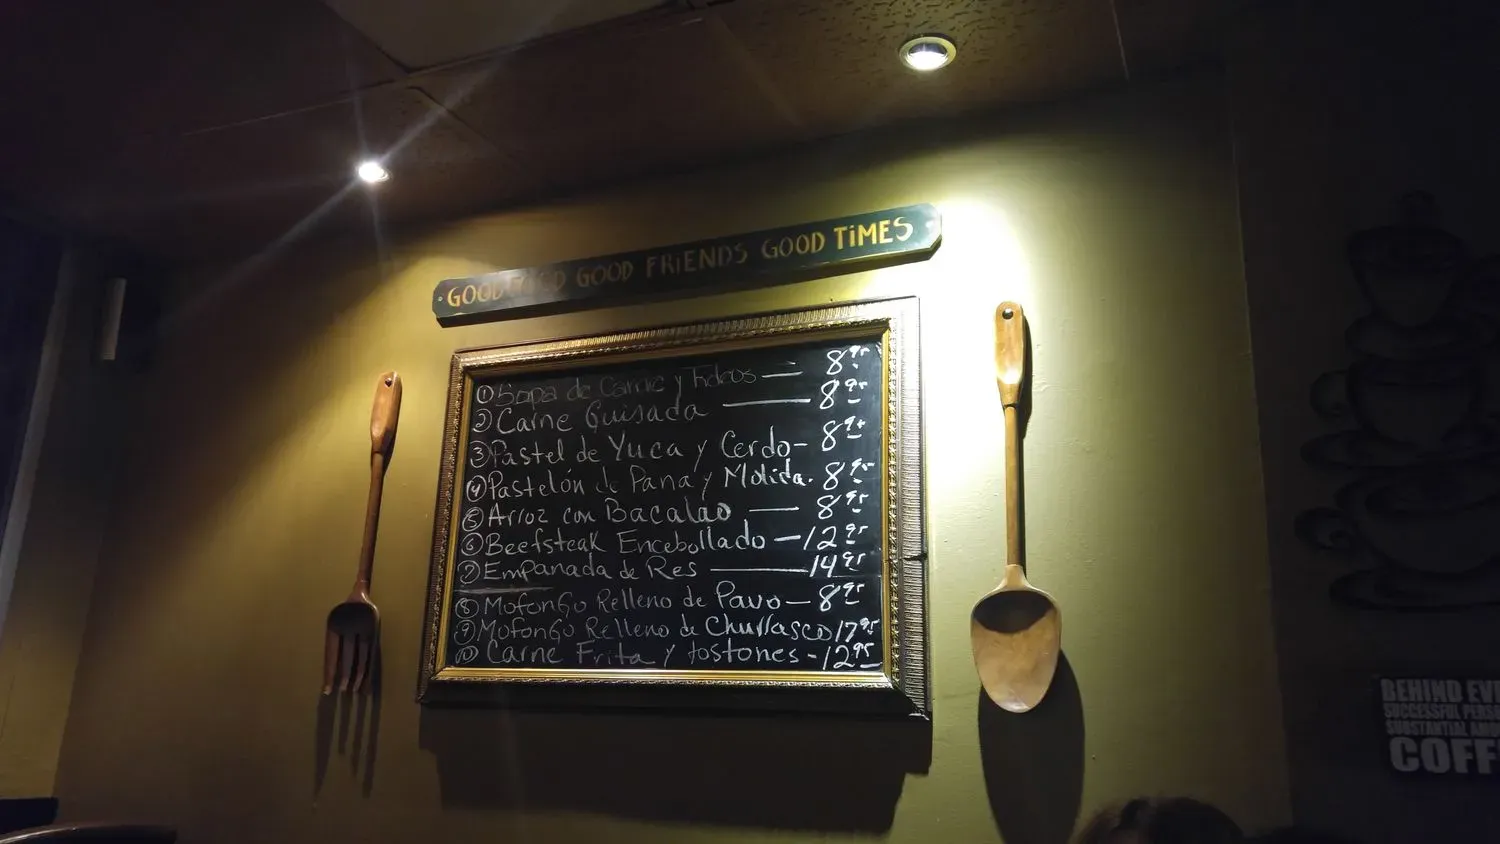 GOOD FOOD GOOD FRiENDS GOOD TiMES
① Sopa de Carne y Fideos — 8.95
② Carne Guisada — 8.95
③ Pastel de Yuca y Cerdo - 8.95
④ Pastelón de Pana y Molida. 8.95
⑤ Arroz con Bacalao — 8.95
⑥ Beefsteak Encebollado — 12.95
⑦ Empanada de Res — 14.95
⑧ Mofongo Relleno de Pavo — 8.95
⑨ Mofongo Relleno de Churrasco 17.95
⑩ Carne Frita y tostones - 12.95
BEHIND
SUCCESSFUL
SUBSTANTIAL